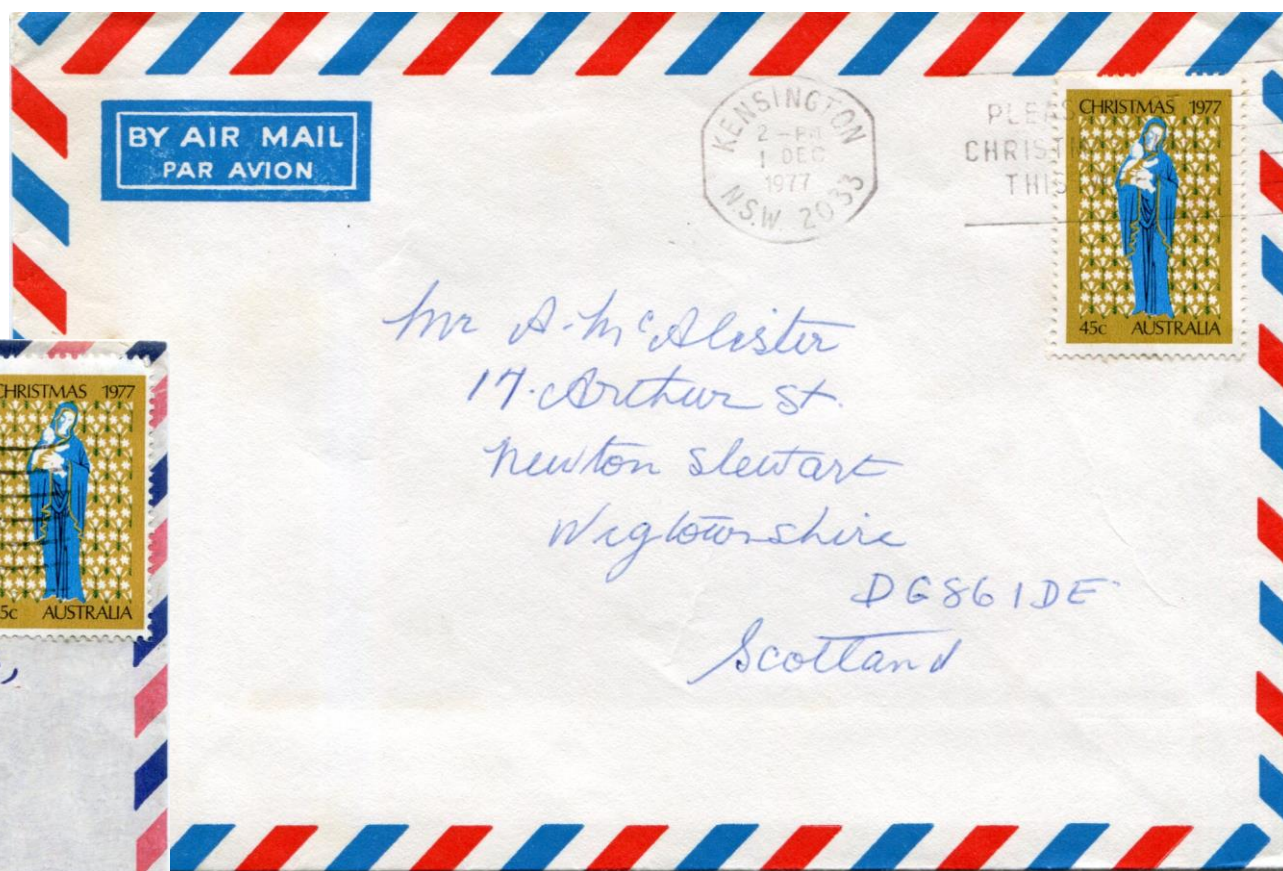 BY AIR MAIL
PAR AVION
KENSINGTON
2 - PM
1 DEC
1977
N.S.W. 2033
PLEAS
CHRIST
THIS
CHRISTMAS 1977
45c AUSTRALIA
Mr A. McAlister
17. Arthur St.
Newton Stewart
Wigtownshire
DG86 1DE
Scotland
CHRISTMAS 1977
5c AUSTRALIA